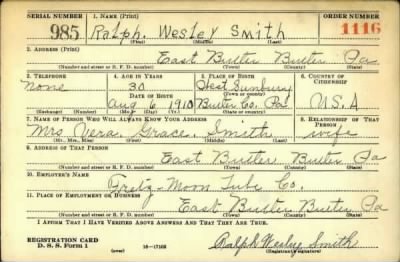 SERIAL NUMBER 1. NAME (Print) ORDER NUMBER
985 Ralph. Wesley Smith 1116
(First) (Middle) (Last)
2. ADDRESS (Print)
East Butler Butler Pa
(Number and street or R. F. D. number) (Town) (County) (State)
3. TELEPHONE 4. AGE IN YEARS 5. PLACE OF BIRTH 6. COUNTRY OF CITIZENSHIP
none 30 West Sunbury
DATE OF BIRTH (Town or county)
Aug 6 1910 Butler Co. Pa. U.S.A
(Exchange) (Number) (Mo.) (Day) (Yr.) (State or country)
7. NAME OF PERSON WHO WILL ALWAYS KNOW YOUR ADDRESS 8. RELATIONSHIP OF THAT PERSON
Mrs Vera. Grace. Smith wife
(Mr., Mrs., Miss) (First) (Middle) (Last)
9. ADDRESS OF THAT PERSON
East Butler Butler Pa
(Number and street or R. F. D. number) (Town) (County) (State)
10. EMPLOYER'S NAME
Moon Tube Co.
11. PLACE OF EMPLOYMENT OR BUSINESS
East Butler Butler Pa
(Number and street or R. F. D. number) (Town) (County) (State)
I AFFIRM THAT I HAVE VERIFIED ABOVE ANSWERS AND THAT THEY ARE TRUE.
REGISTRATION CARD
D. S. S. Form 1 (over) Ralph Wesley Smith
(Registrant's signature)